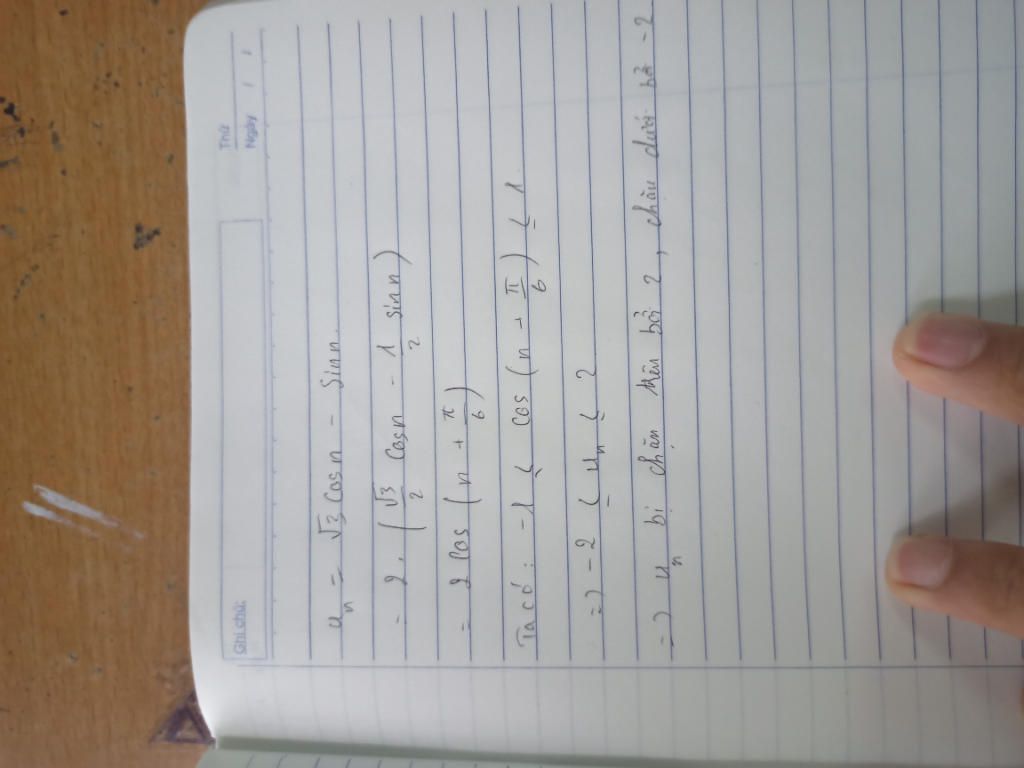 Ghi chú:
Thứ
Ngày / /
uₙ = √3 cosn - sinn.
= 2. (√3/2 cosn - 1/2 sinn)
= 2 cos (n + π/6)
Ta có: -1 ≤ cos (n - π/6) ≤ 1.
=> -2 ≤ uₙ ≤ 2
=> uₙ bị chặn trên bởi 2, chặn dưới bởi -2